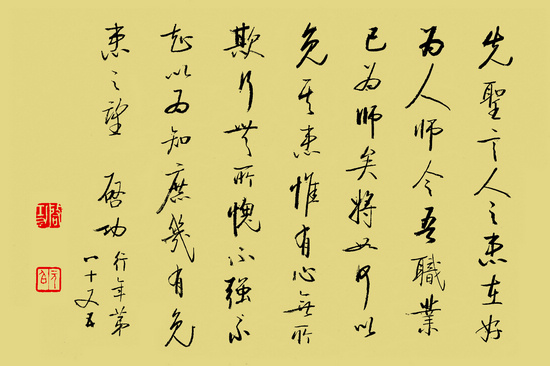 先聖言人之患在好
为人师今吾職業
已为师矣将如何以
免其患惟有心無所
欺行無所愧不强不
知以为知庶幾有免
患之望 啓功
行年第
八十又五